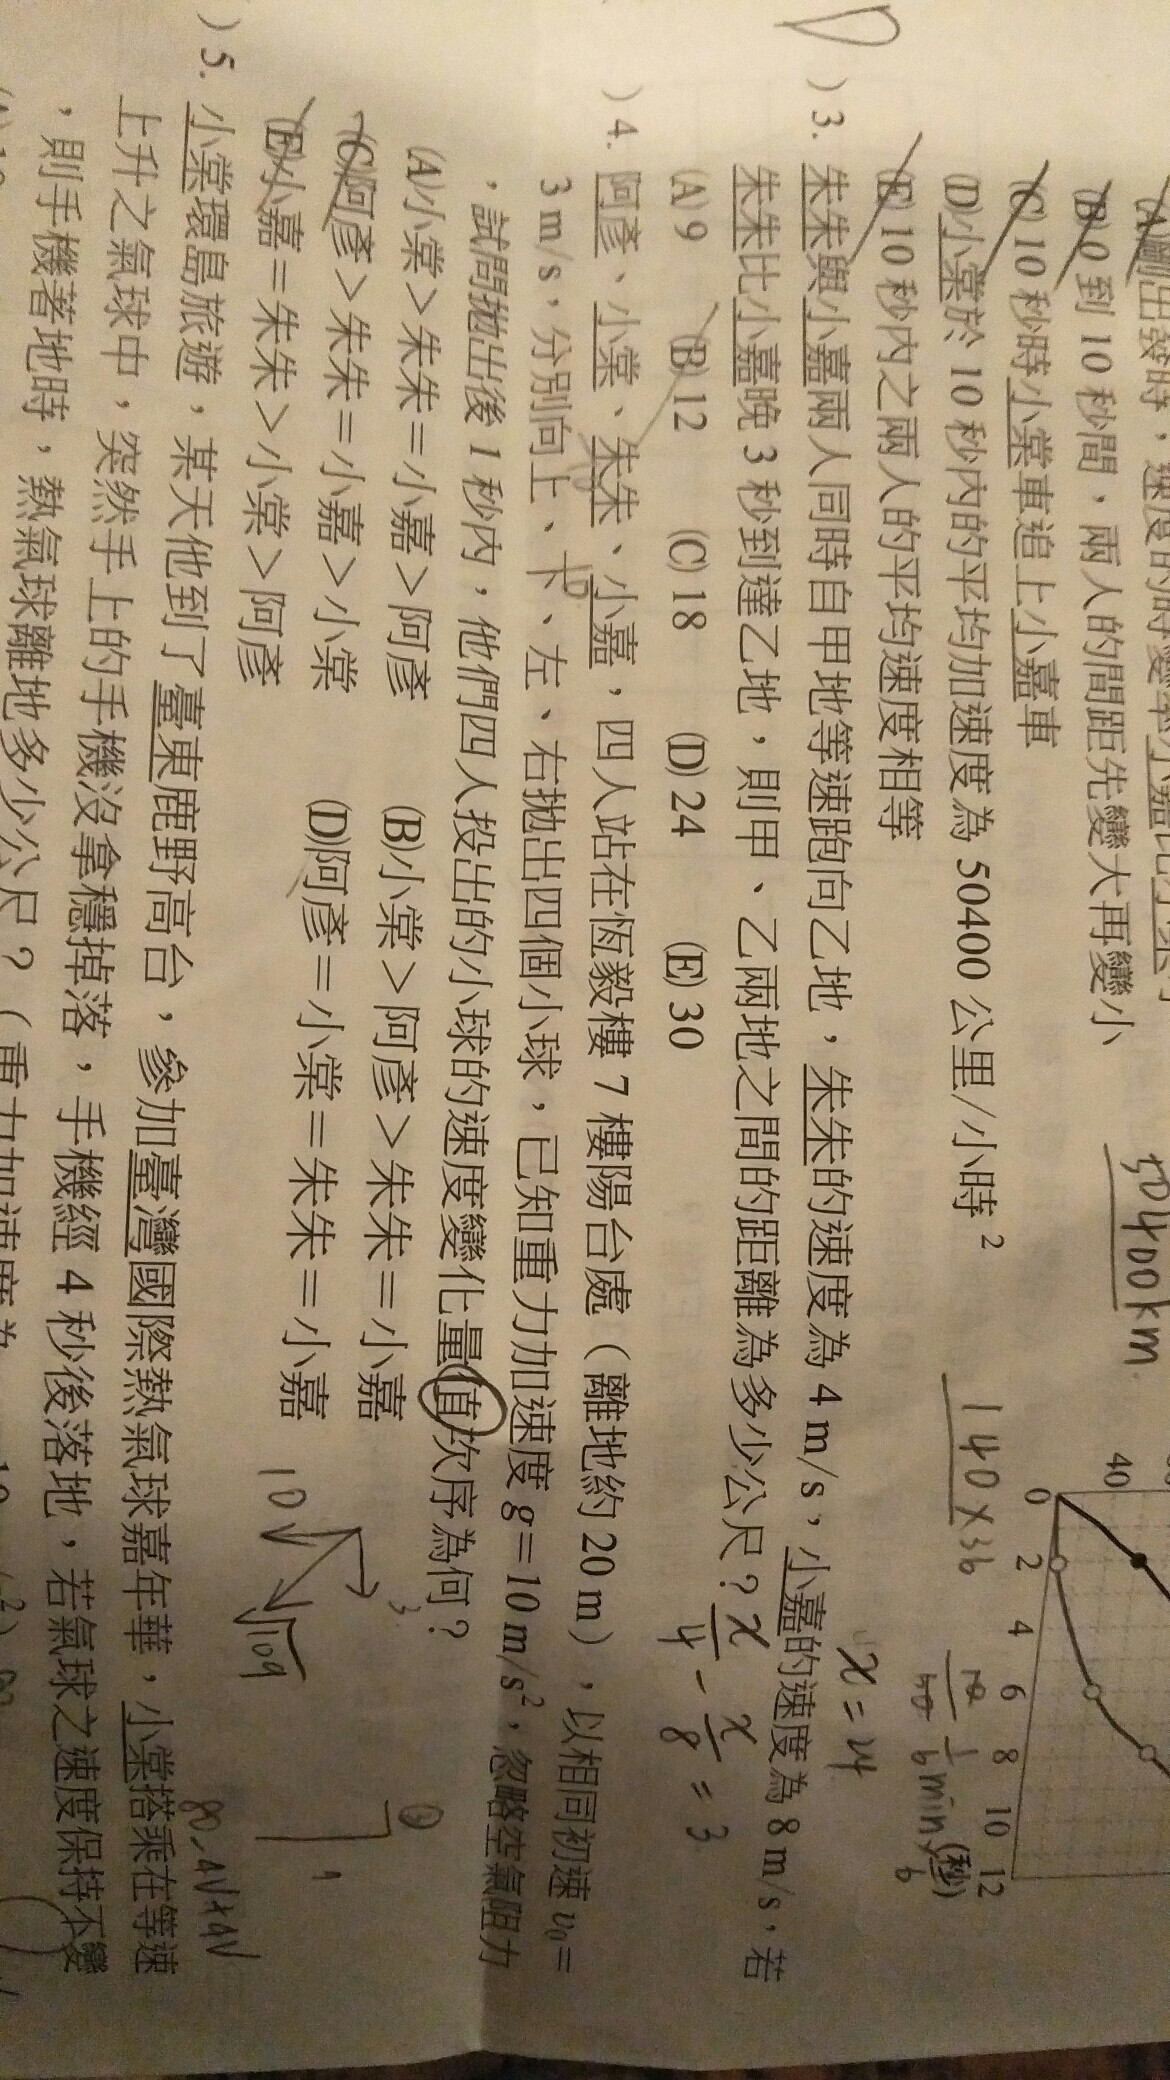 (B) 0 到 10 秒間，兩人的間距先變大再變小
(C) 10 秒時小棠車追上小嘉車
(D)小棠於 10 秒內的平均加速度為 50400 公里/小時²
(E) 10 秒內之兩人的平均速度相等
50400km
140×36
40
0 2 4 6 8 10 12
(秒)
) 3. 朱朱與小嘉兩人同時自甲地等速跑向乙地，朱朱的速度為 4 m/s，小嘉的速度為 8 m/s，若
朱朱比小嘉晚 3 秒到達乙地，則甲、乙兩地之間的距離為多少公尺？
x/4 - x/8 = 3
(A) 9 (B) 12 (C) 18 (D) 24 (E) 30
) 4. 阿彥、小棠、朱朱、小嘉，四人站在恆毅樓 7 樓陽台處（離地約 20 m），以相同初速 v₀＝
3 m/s，分別向上、下、左、右拋出四個小球，已知重力加速度 g＝10 m/s²，忽略空氣阻力
，試問拋出後 1 秒內，他們四人投出的小球的速度變化量值次序為何？
(A)小棠＞朱朱＝小嘉＞阿彥 (B)小棠＞阿彥＞朱朱＝小嘉
(C)阿彥＞朱朱＝小嘉＞小棠 (D)阿彥＝小棠＝朱朱＝小嘉
(E)小嘉＝朱朱＞小棠＞阿彥
10
3
√109
) 5. 小棠環島旅遊，某天他到了臺東鹿野高台，參加臺灣國際熱氣球嘉年華，小棠搭乘在等速
上升之氣球中，突然手上的手機沒拿穩掉落，手機經 4 秒後落地，若氣球之速度保持不變
，則手機著地時，熱氣球離地多少公尺？（重力加速度為